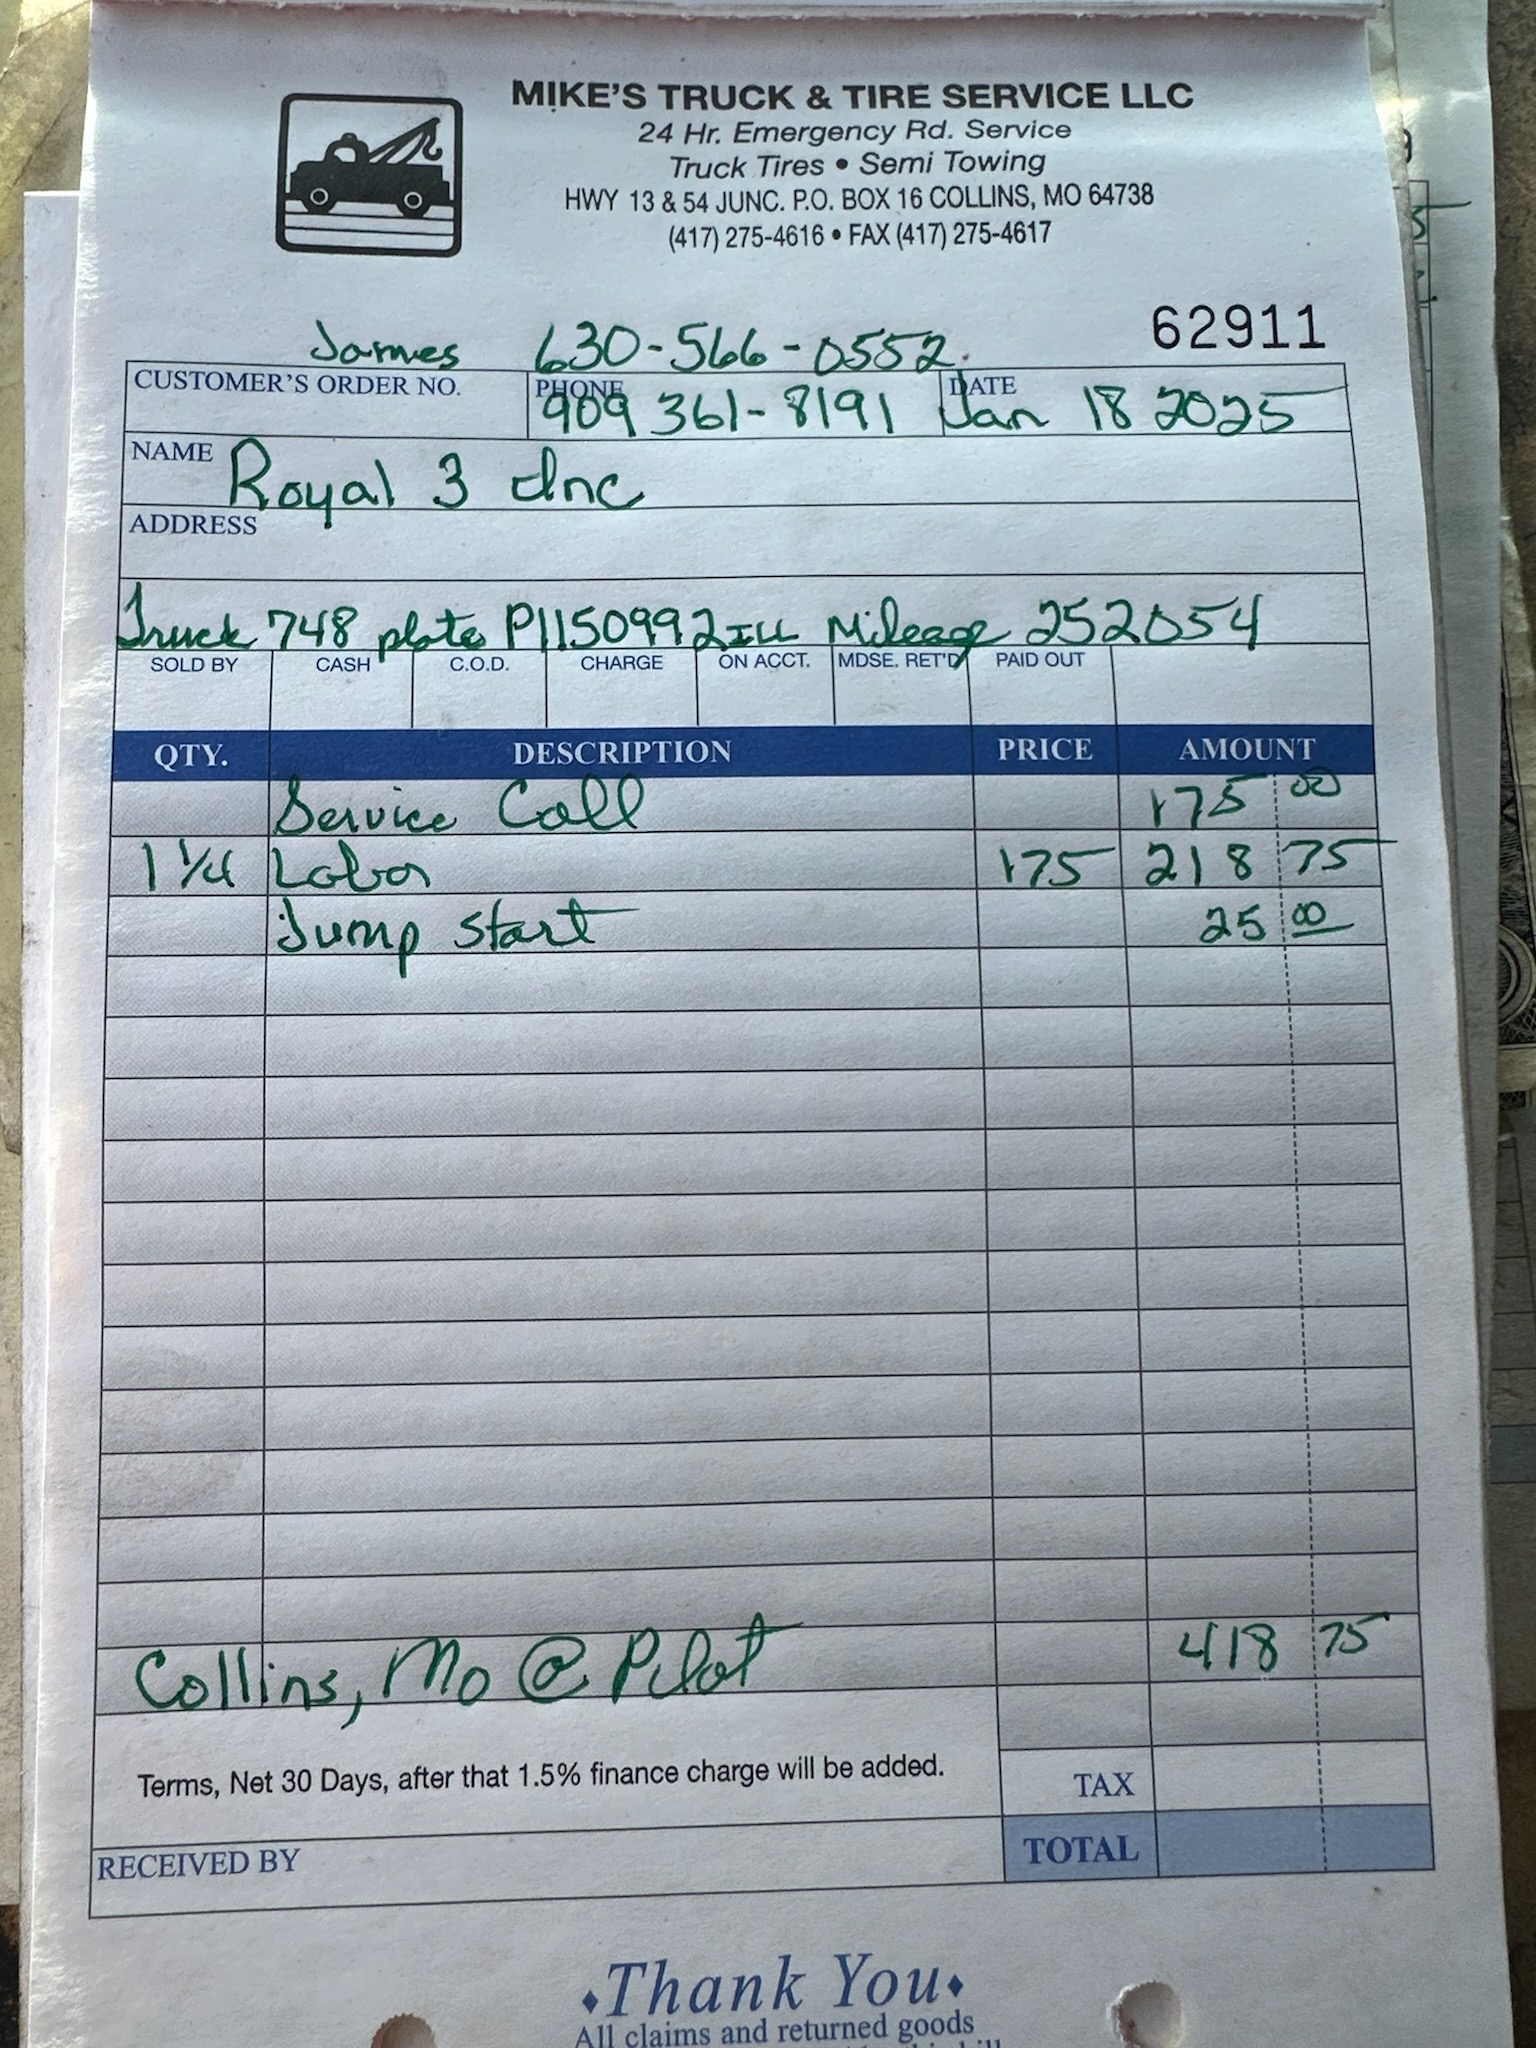 MIKE'S TRUCK & TIRE SERVICE LLC
24 Hr. Emergency Rd. Service
Truck Tires • Semi Towing
HWY 13 & 54 JUNC. P.O. BOX 16 COLLINS, MO 64738
(417) 275-4616 • FAX (417) 275-4617
62911
James 630-566-0552
CUSTOMER'S ORDER NO. PHONE 909 361-8191 DATE Jan 18 2025
NAME Royal 3 Inc
ADDRESS
Truck 748 plate P1150992 ILL Mileage 252054
SOLD BY CASH C.O.D. CHARGE ON ACCT. MDSE. RET'D PAID OUT
QTY. DESCRIPTION PRICE AMOUNT
Service Call 175 00
1 1/4 Labor 175 218 75
Jump start 25 00
Collins, Mo @ Pilot 418 75
Terms, Net 30 Days, after that 1.5% finance charge will be added.
TAX
TOTAL
RECEIVED BY
Thank You
All claims and returned goods